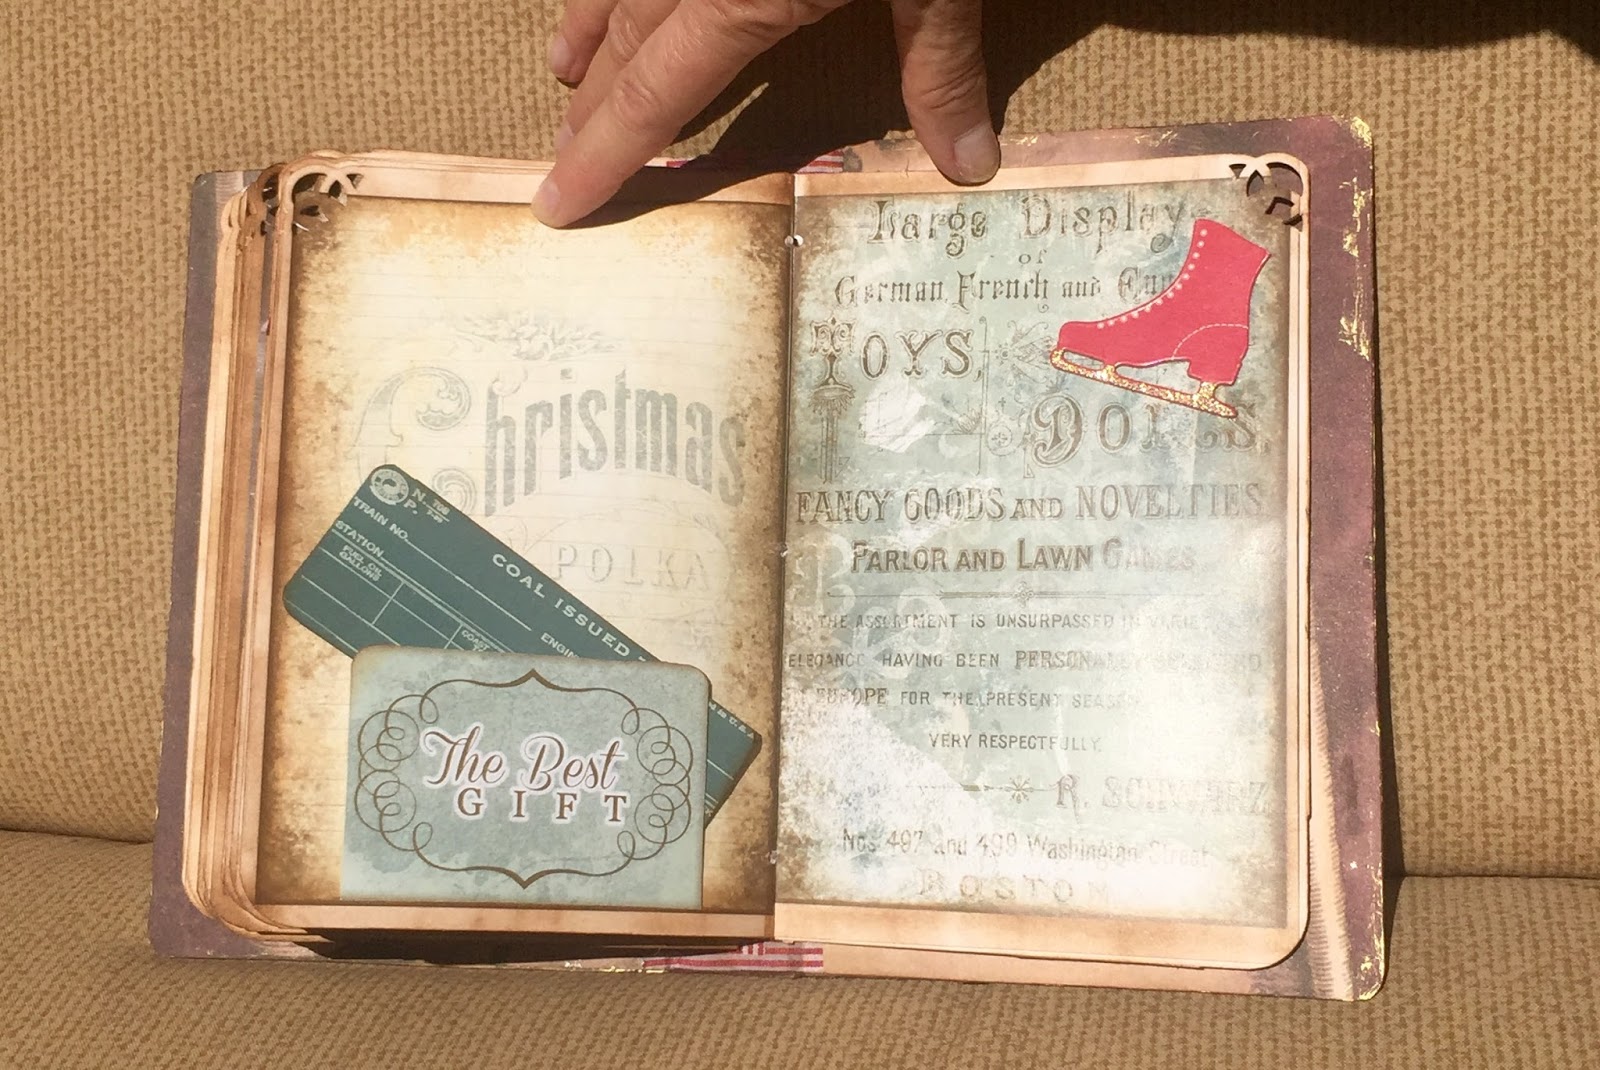 Christmas
POLKA
N.
P.
TRAIN NO.
STATION
FUEL OIL
GALLONS
COAL ISSUED
The Best
GIFT
Large Display
of
German, French and
TOYS,
DOLLS,
FANCY GOODS AND NOVELTIES
PARLOR AND LAWN GAMES
THE ASSORTMENT IS UNSURPASSED IN
ELEGANCE HAVING BEEN PERSONALLY
EUROPE FOR THE PRESENT SEASON
VERY RESPECTFULLY,
R. SCHWARZ
Nos 497 and 499 Washington Street
BOSTON